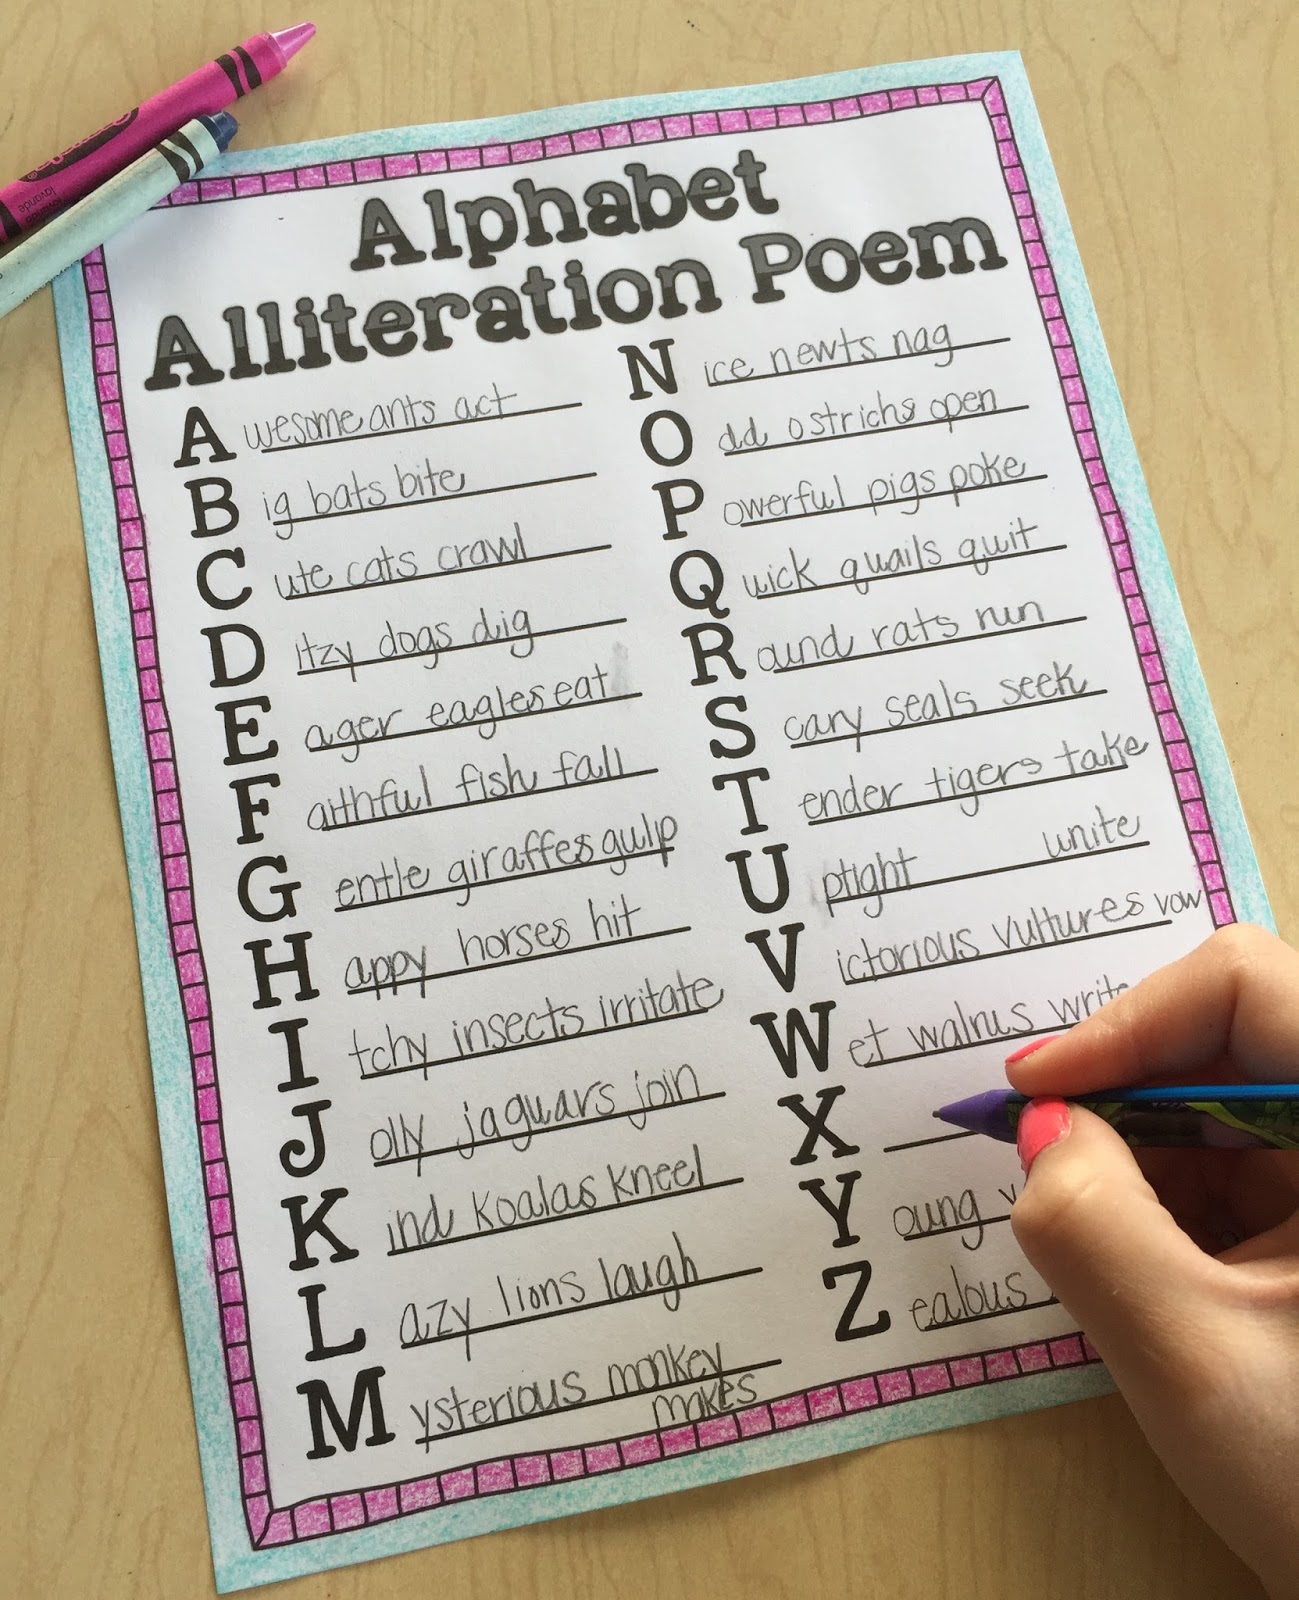 Alphabet
Alliteration Poem
Awesome ants act
Big bats bite
Cute cats crawl
Ditzy dogs dig
Eager eagles eat
Faithful fish fall
Gentle giraffes gulp
Happy horses hit
Itchy insects irritate
Jolly jaguars join
Kind koalas kneel
Lazy lions laugh
Mysterious monkey
makes
Nice newts nag
Odd ostrichs open
Powerful pigs poke
Quick quails quit
Round rats run
Scary seals seek
Tender tigers take
Uptight unite
Victorious vultures vow
Wet walrus write
X
Young
Zealous
lavande